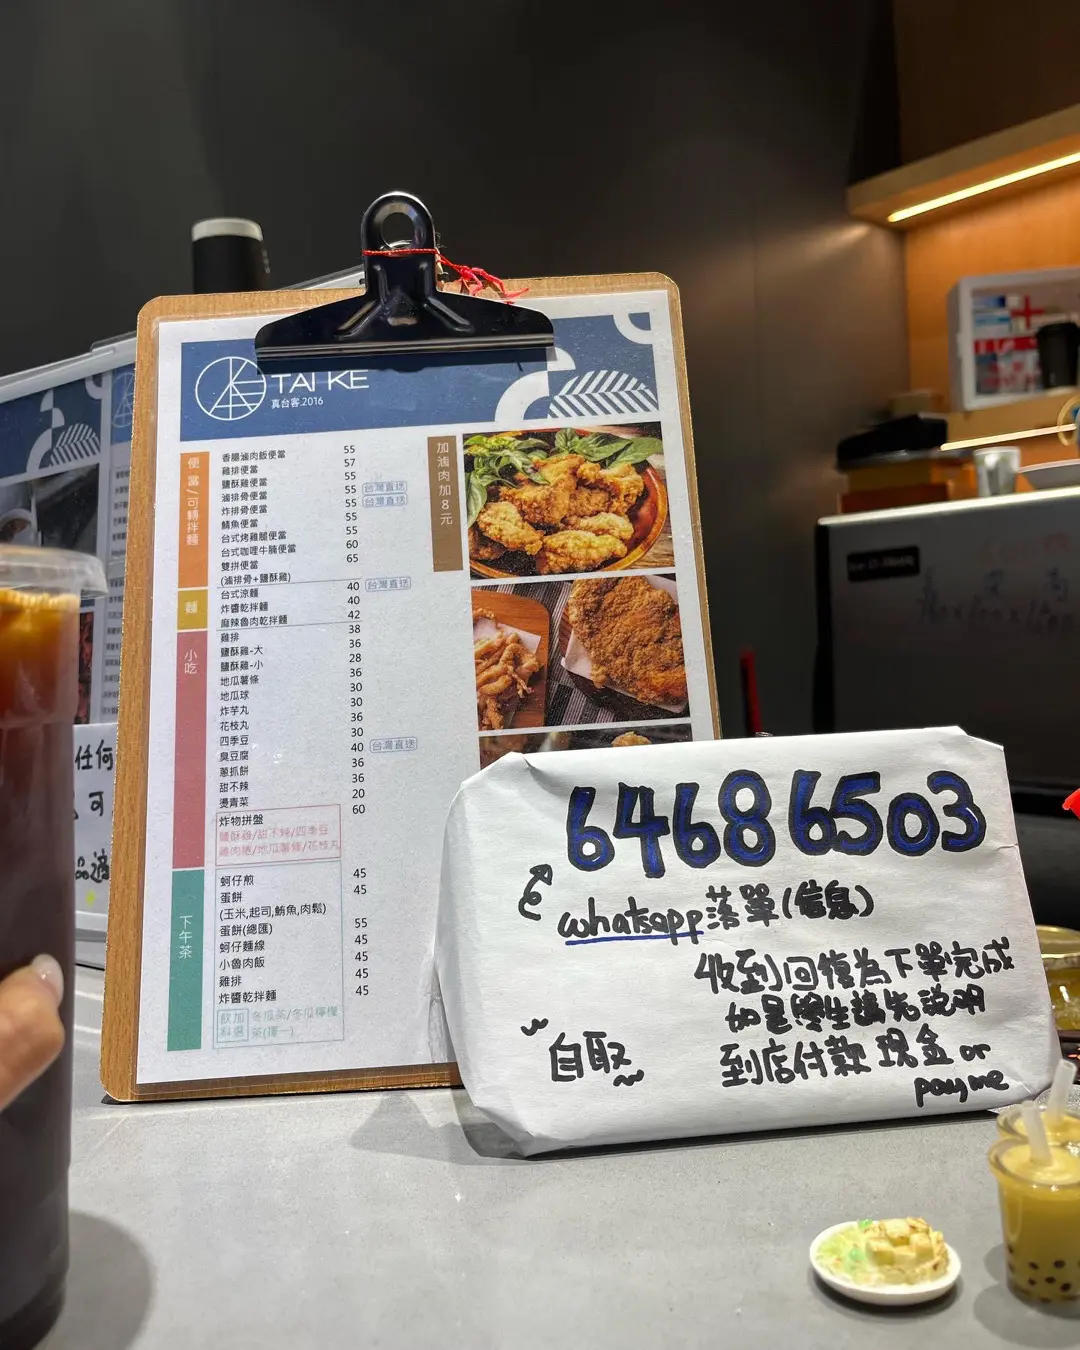 TAI KE
真台客.2016
便當/可轉拌麵
香腸滷肉飯便當 55
雞排便當 57
鹽酥雞便當 55
滷排骨便當 55 台灣直送
炸排骨便當 55 台灣直送
鯖魚便當 55
台式烤雞腿便當 55
台式咖哩牛腩便當 60
雙拼便當 65
(滷排骨+鹽酥雞)
加滷肉加8元
麵
台式涼麵 40 台灣直送
炸醬乾拌麵 40
麻辣魯肉乾拌麵 42
小吃
雞排 38
鹽酥雞-大 36
鹽酥雞-小 28
地瓜薯條 36
地瓜球 30
炸芋丸 30
花枝丸 36
四季豆 30
臭豆腐 40 台灣直送
蔥抓餅 36
甜不辣 36
燙青菜 20
炸物拼盤 60
鹽酥雞/甜不辣/四季豆
雞肉捲/地瓜薯條/花枝丸
下午茶
蚵仔煎 45
蛋餅 45
(玉米,起司,鮪魚,肉鬆)
蛋餅(總匯) 55
蚵仔麵線 45
小魯肉飯 45
雞排 45
炸醬乾拌麵 45
飲加 冬瓜茶/冬瓜檸檬
料選 茶(擇一)
64686503
whatsapp落單(信息)
收到回復為下單完成
如是學生請先說明
自取
到店付款 現金 or
payme
任何
可
品適